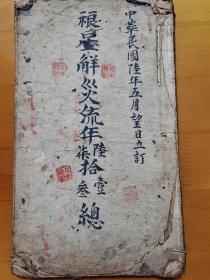 中華民國陸年五月望日立訂
禄星解災流年陸拾壹總
柒叁